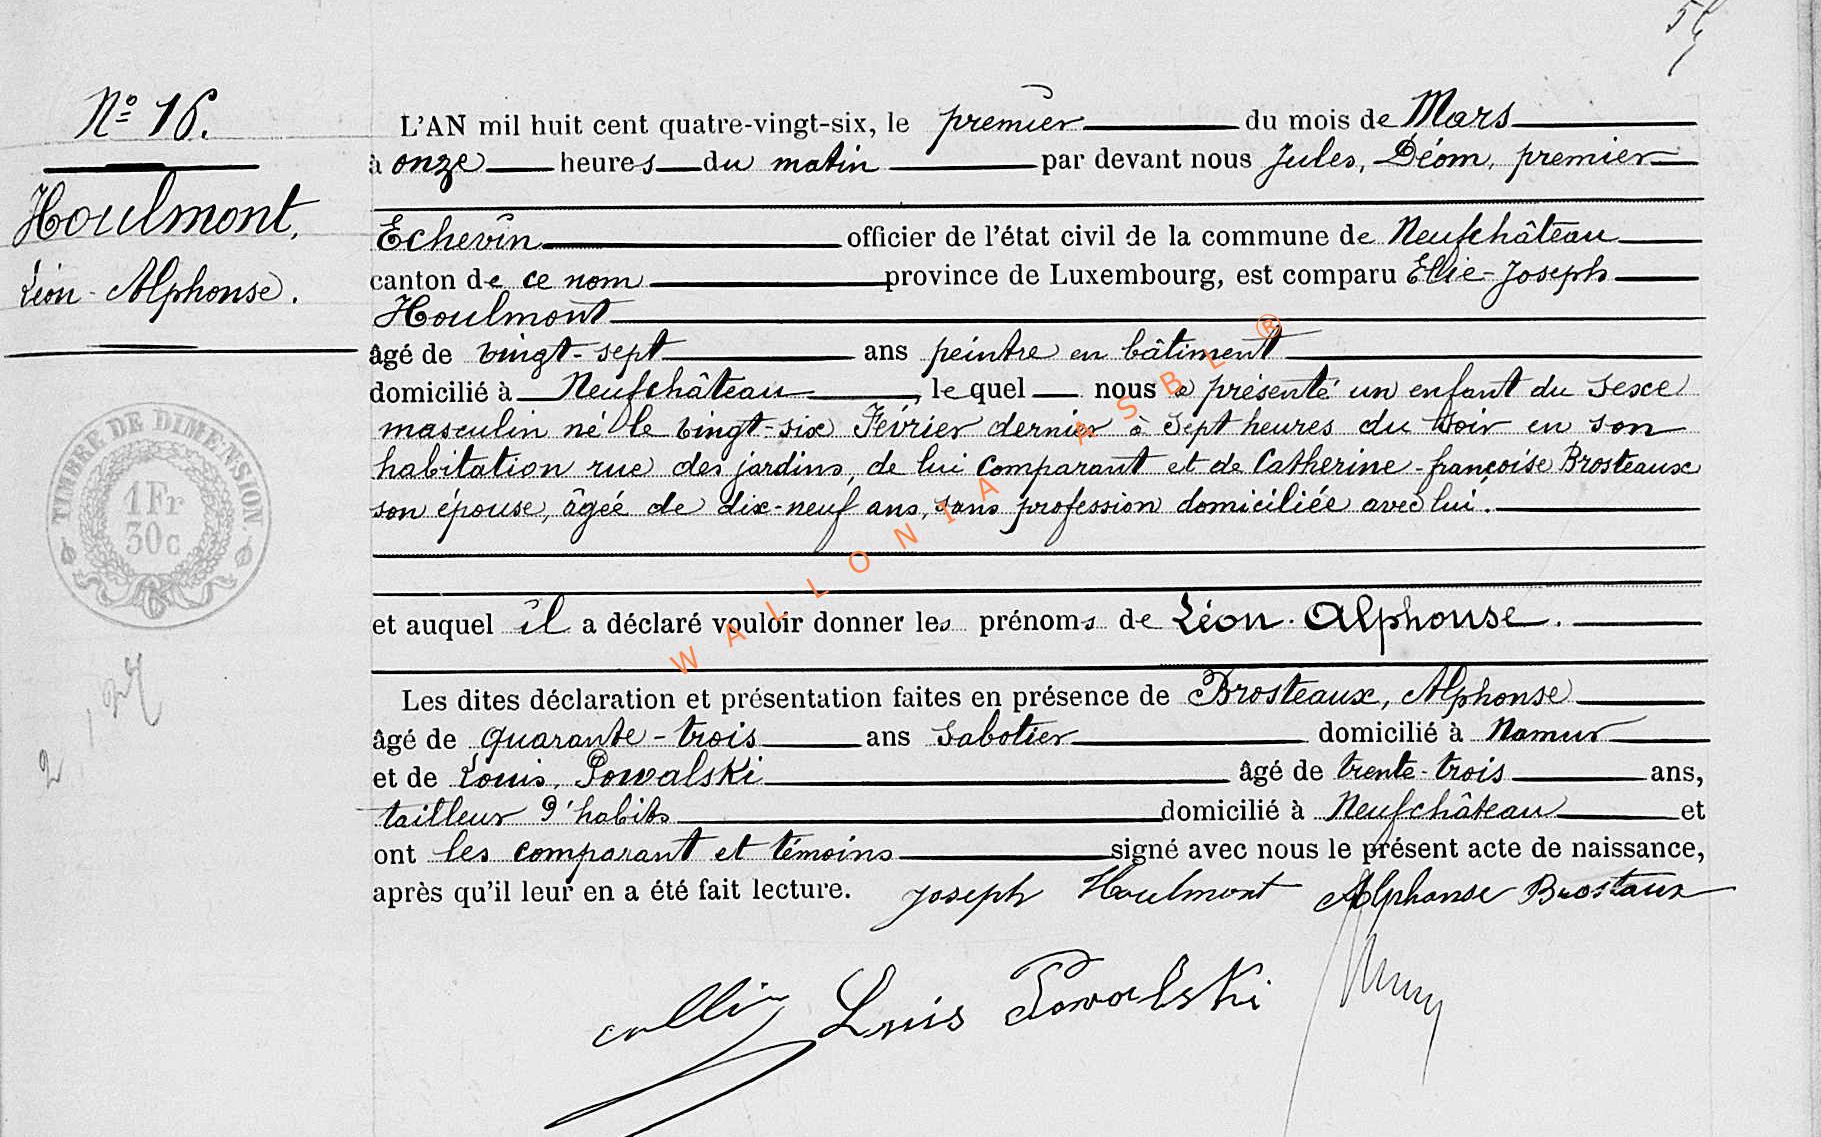 Nº 16.
Houlmont,
Léon-Alphonse.
TIMBRE DE DIMENSION
1Fr
30c
L'AN mil huit cent quatre-vingt-six, le premier du mois de Mars
à onze heures du matin par devant nous Jules, Déom, premier
Echevin officier de l'état civil de la commune de Neufchâteau
canton de ce nom province de Luxembourg, est comparu Elie-Joseph
Houlmont
âgé de vingt-sept ans peintre en bâtiment
domicilié à Neufchâteau, le quel nous a présenté un enfant du sexe
masculin né le vingt-six Février dernier à sept heures du soir en son
habitation rue des jardins, de lui comparant et de Catherine-françoise Brosteaux
son épouse, âgée de dix-neuf ans, sans profession domiciliée avec lui.
et auquel il a déclaré vouloir donner les prénoms de Léon-Alphonse.
Les dites déclaration et présentation faites en présence de Brosteaux, Alphonse
âgé de quarante-trois ans sabotier domicilié à Namur
et de Louis, Powalski âgé de trente-trois ans,
tailleur d'habits domicilié à Neufchâteau et
ont les comparant et témoins signé avec nous le présent acte de naissance,
après qu'il leur en a été fait lecture. Joseph Houlmont Alphonse Brostaux
Louis Powalski
WALLONIA ASBL ®